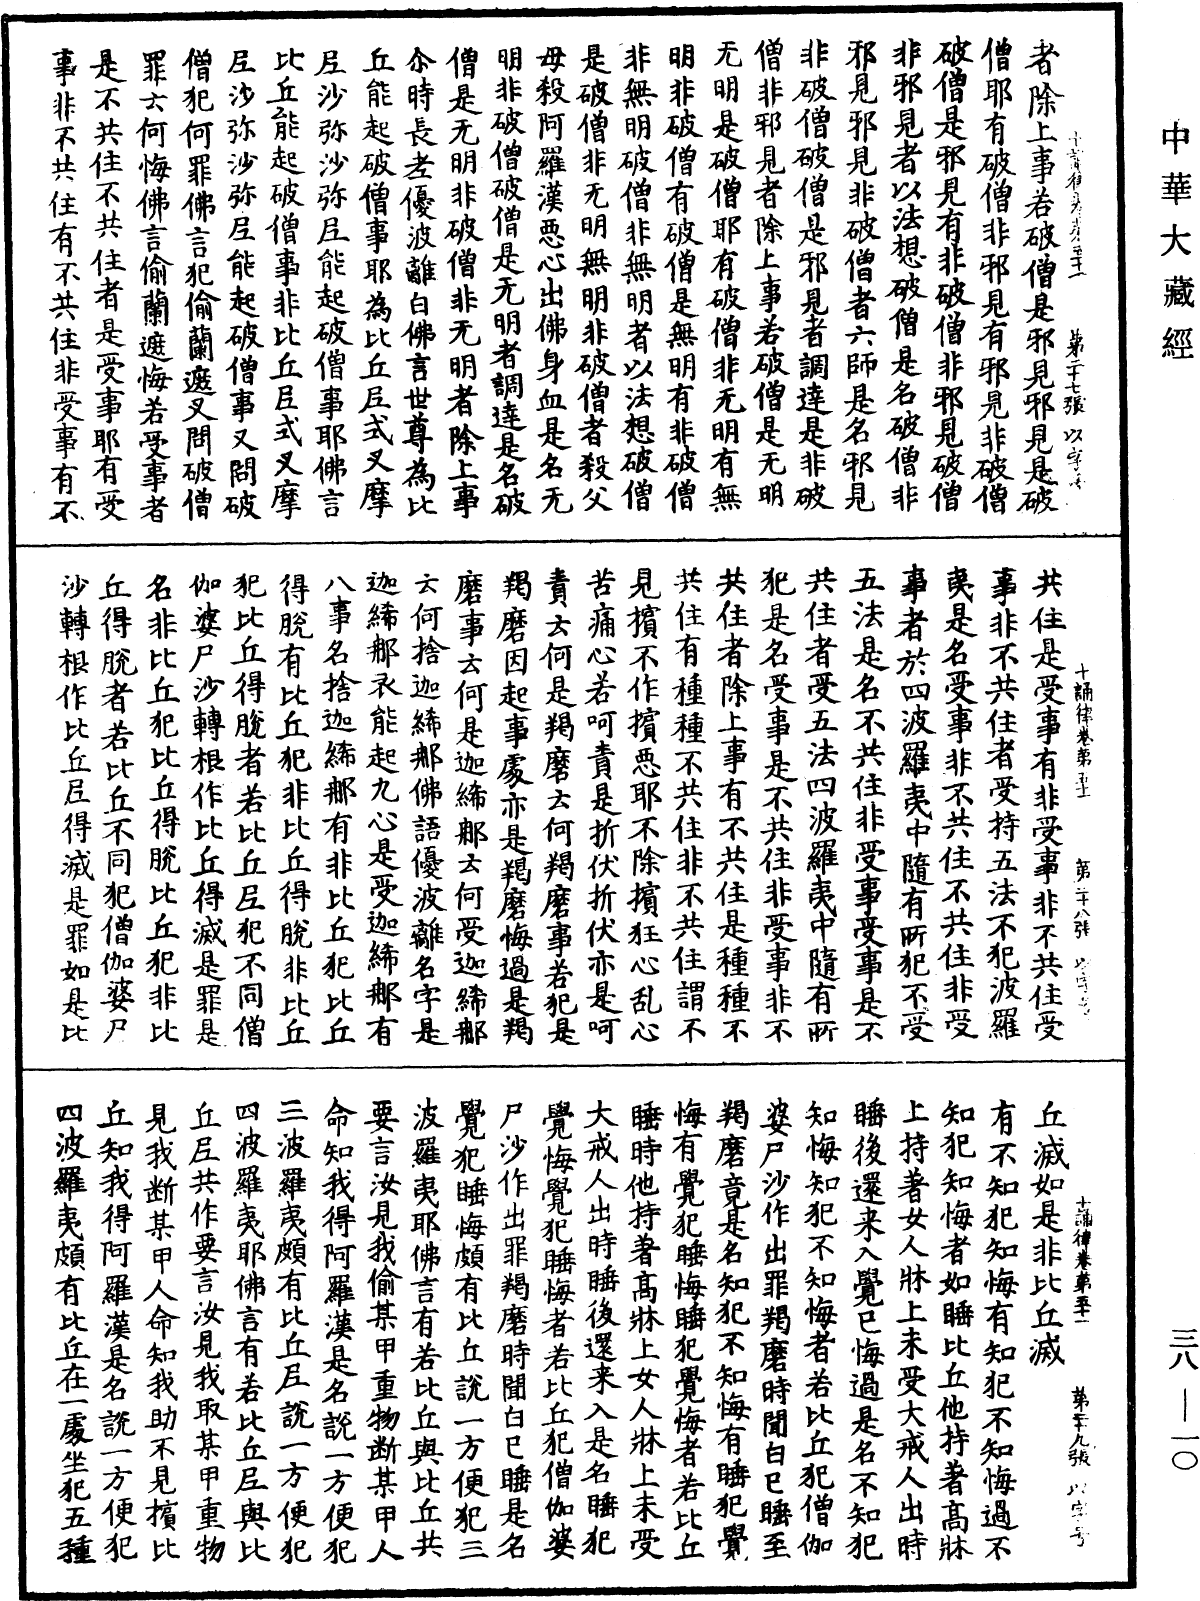 中華大藏經
者除上事若破僧是邪見邪見是破
僧耶有破僧非邪見有邪見非破僧
破僧是邪見有非破僧非邪見破僧
非邪見者以法想破僧是名破僧非
邪見邪見非破僧者六師是名邪見
非破僧破僧是邪見者調達是非破
僧非邪見者除上事若破僧是无明
无明是破僧耶有破僧非无明有無
明非破僧有破僧是無明有非破僧
非無明破僧非無明者以法想破僧
是破僧非无明無明非破僧者殺父
母殺阿羅漢惡心出佛身血是名无
明非破僧破僧是无明者調達是名破
僧是无明非破僧非无明者除上事
尒時長老優波離白佛言世尊為比
丘能起破僧事耶為比丘尼式叉摩
尼沙弥沙弥尼能起破僧事耶佛言
比丘能起破僧事非比丘尼式叉摩
尼沙弥沙弥尼能起破僧事又問破
僧犯何罪佛言犯偷蘭遮又問破僧
罪云何悔佛言偷蘭遮悔若受事者
是不共住不共住者是受事耶有受
事非不共住有不共住非受事有不
十誦律卷第五十一 第二十八張 以字号
共住是受事有非受事非不共住受
事非不共住者受持五法不犯波羅
夷是名受事非不共住不共住非受
事者於四波羅夷中隨有所犯不受
五法是名不共住非受事受事是不
共住者受五法四波羅夷中隨有所
犯是名受事是不共住非受事非不
共住者除上事有不共住是種種不
共住有種種不共住非不共住謂不
見擯不作擯惡耶不除擯狂心乱心
苦痛心若呵責是折伏折伏亦是呵
責云何是羯磨云何羯磨事若犯是
羯磨因起事處亦是羯磨悔過是羯
磨事云何是迦絺那云何受迦絺那
云何捨迦絺那佛語優波離名字是
迦絺那衣能起九心是受迦絺那有
八事名捨迦絺那有非比丘犯比丘
得脫有比丘犯非比丘得脫非比丘
犯比丘得脫者若比丘尼犯不同僧
伽婆尸沙轉根作比丘得滅是罪是
名非比丘犯比丘得脫比丘犯非比
丘得脫者若比丘不同犯僧伽婆尸
沙轉根作比丘尼得滅是罪如是比
十誦律卷第五十一 第二十九張 以字号
丘滅如是非比丘滅
有不知犯知悔有知犯不知悔過不
知犯知悔者如睡比丘他持著高牀
上持著女人牀上未受大戒人出時
睡後還来入覺已悔過是名不知犯
知悔知犯不知悔者若比丘犯僧伽
婆尸沙作出罪羯磨時聞白已睡至
羯磨竟是名知犯不知悔有睡犯覺
悔有覺犯睡悔睡犯覺悔者若比丘
睡時他持著高牀上女人牀上未受
大戒人出時睡後還来入是名睡犯
覺悔覺犯睡悔者若比丘犯僧伽婆
尸沙作出罪羯磨時聞白已睡是名
覺犯睡悔頗有比丘說一方便犯三
波羅夷耶佛言有若比丘與比丘共
要言汝見我偷某甲重物断某甲人
命知我得阿羅漢是名說一方便犯
三波羅夷頗有比丘尼說一方便犯
四波羅夷耶佛言有若比丘尼與比
丘尼共作要言汝見我取某甲重物
見我断某甲人命知我助不見擯比
丘知我得阿羅漢是名說一方便犯
四波羅夷頗有比丘在一處坐犯五種
三八—一〇